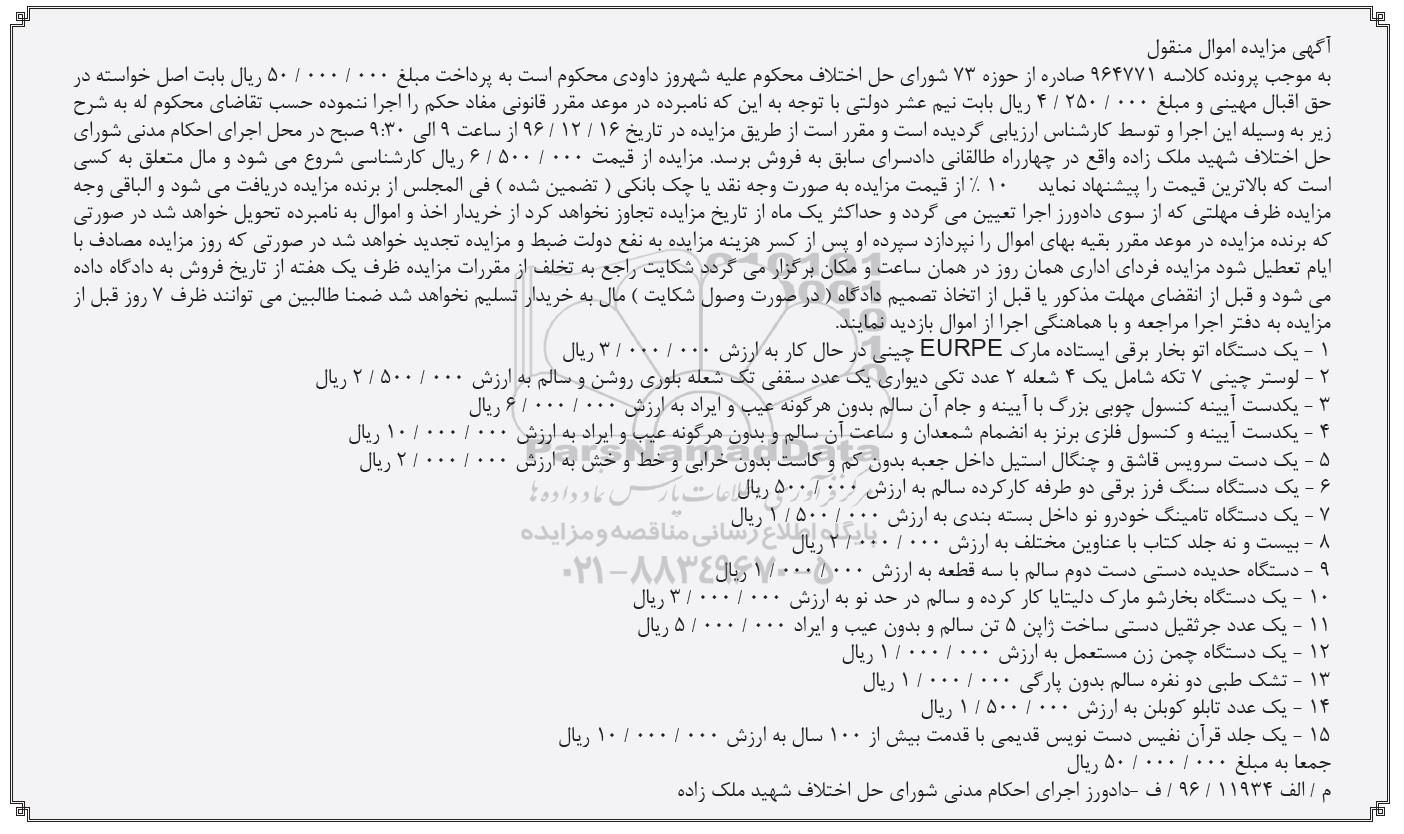 آگهی مزایده اموال منقول
به موجب پرونده کلاسه ۹۶۴۷۷۱ صادره از حوزه ۷۳ شورای حل اختلاف محکوم علیه شهروز داودی محکوم است به پرداخت مبلغ ۰۰۰ / ۰۰۰ / ۵۰ ریال بابت اصل خواسته در
حق اقبال مهینی و مبلغ ۰۰۰ / ۲۵۰ / ۴ ریال بابت نیم عشر دولتی با توجه به این که نامبرده در موعد مقرر قانونی مفاد حکم را اجرا ننموده حسب تقاضای محکوم له به شرح
زیر به وسیله این اجرا و توسط کارشناس ارزیابی گردیده است و مقرر است از طریق مزایده در تاریخ ۱۶ / ۱۲ / ۹۶ از ساعت ۹ الی ۹:۳۰ صبح در محل اجرای احکام مدنی شورای
حل اختلاف شهید ملک زاده واقع در چهارراه طالقانی دادسرای سابق به فروش برسد. مزایده از قیمت ۰۰۰ / ۵۰۰ / ۶ ریال کارشناسی شروع می شود و مال متعلق به کسی
است که بالاترین قیمت را پیشنهاد نماید ۱۰ ٪ از قیمت مزایده به صورت وجه نقد یا چک بانکی ( تضمین شده ) فی المجلس از برنده مزایده دریافت می شود و الباقی وجه
مزایده ظرف مهلتی که از سوی دادورز اجرا تعیین می گردد و حداکثر یک ماه از تاریخ مزایده تجاوز نخواهد کرد از خریدار اخذ و اموال به نامبرده تحویل خواهد شد در صورتی
که برنده مزایده در موعد مقرر بقیه بهای اموال را نپردازد سپرده او پس از کسر هزینه مزایده به نفع دولت ضبط و مزایده تجدید خواهد شد در صورتی که روز مزایده مصادف با
ایام تعطیل شود مزایده فردای اداری همان روز در همان ساعت و مکان برگزار می گردد شکایت راجع به تخلف از مقررات مزایده ظرف یک هفته از تاریخ فروش به دادگاه داده
می شود و قبل از انقضای مهلت مذکور یا قبل از اتخاذ تصمیم دادگاه ( در صورت وصول شکایت ) مال به خریدار تسلیم نخواهد شد ضمنا طالبین می توانند ظرف ۷ روز قبل از
مزایده به دفتر اجرا مراجعه و با هماهنگی اجرا از اموال بازدید نمایند.
۱ - یک دستگاه اتو بخار برقی ایستاده مارک EURPE چینی در حال کار به ارزش ۰۰۰ / ۰۰۰ / ۳ ریال
۲ - لوستر چینی ۷ تکه شامل یک ۴ شعله ۲ عدد تکی دیواری یک عدد سقفی تک شعله بلوری روشن و سالم به ارزش ۰۰۰ / ۵۰۰ / ۲ ریال
۳ - یکدست آیینه کنسول چوبی بزرگ با آیینه و جام آن سالم بدون هرگونه عیب و ایراد به ارزش ۰۰۰ / ۰۰۰ / ۶ ریال
۴ - یکدست آیینه و کنسول فلزی برنز به انضمام شمعدان و ساعت آن سالم و بدون هرگونه عیب و ایراد به ارزش ۰۰۰ / ۰۰۰ / ۱۰ ریال
۵ - یک دست سرویس قاشق و چنگال استیل داخل جعبه بدون کم و کاست بدون خرابی و خط و خش به ارزش ۰۰۰ / ۰۰۰ / ۲ ریال
۶ - یک دستگاه سنگ فرز برقی دو طرفه کارکرده سالم به ارزش ۰۰۰ / ۵۰۰ ریال
۷ - یک دستگاه تامینگ خودرو نو داخل بسته بندی به ارزش ۰۰۰ / ۵۰۰ / ۱ ریال
۸ - بیست و نه جلد کتاب با عناوین مختلف به ارزش ۰۰۰ / ۰۰۰ / ۲ ریال
۹ - دستگاه حدیده دستی دست دوم سالم با سه قطعه به ارزش ۰۰۰ / ۰۰۰ / ۱ ریال
۱۰ - یک دستگاه بخارشو مارک دلیتایا کار کرده و سالم در حد نو به ارزش ۰۰۰ / ۰۰۰ / ۳ ریال
۱۱ - یک عدد جرثقیل دستی ساخت ژاپن ۵ تن سالم و بدون عیب و ایراد ۰۰۰ / ۰۰۰ / ۵ ریال
۱۲ - یک دستگاه چمن زن مستعمل به ارزش ۰۰۰ / ۰۰۰ / ۱ ریال
۱۳ - تشک طبی دو نفره سالم بدون پارگی ۰۰۰ / ۰۰۰ / ۱ ریال
۱۴ - یک عدد تابلو کوبلن به ارزش ۰۰۰ / ۵۰۰ / ۱ ریال
۱۵ - یک جلد قرآن نفیس دست نویس قدیمی با قدمت بیش از ۱۰۰ سال به ارزش ۰۰۰ / ۰۰۰ / ۱۰ ریال
جمعا به مبلغ ۰۰۰ / ۰۰۰ / ۵۰ ریال
م / الف ۱۱۹۳۴ / ۹۶ / ف -دادورز اجرای احکام مدنی شورای حل اختلاف شهید ملک زاده
ParsNamadData
مرکز فرآوری اطلاعات پارس نماد داده ها
پایگاه اطلاع رسانی مناقصه و مزایده
۰۲۱-۸۸۳۴۹۶۷۰-۵